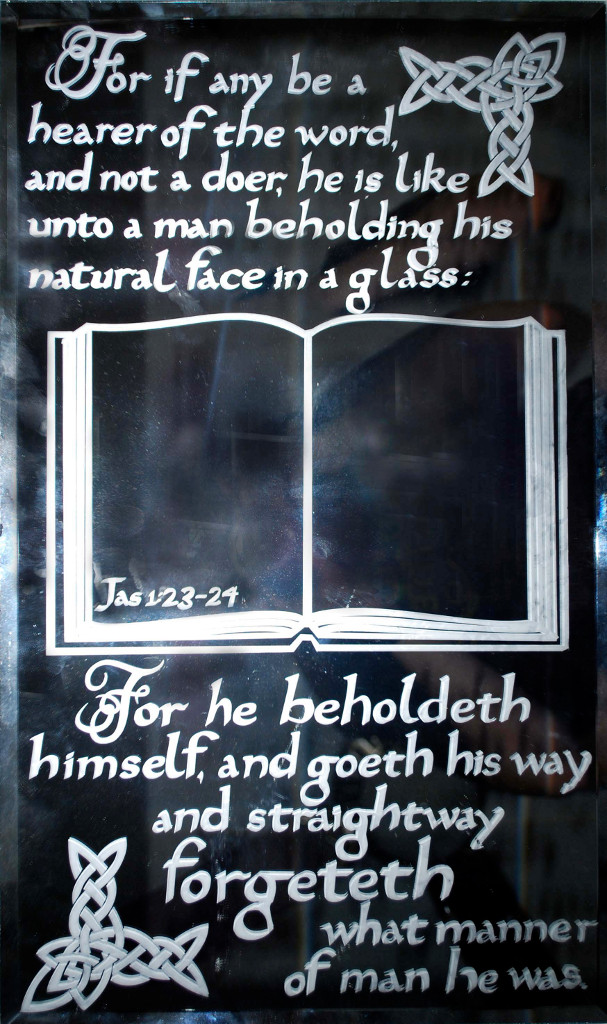 For if any be a
hearer of the word,
and not a doer, he is like
unto a man beholding his
natural face in a glass:
Jas 1:23-24
For he beholdeth
himself, and goeth his way
and straightway
forgeteth
what manner
of man he was.